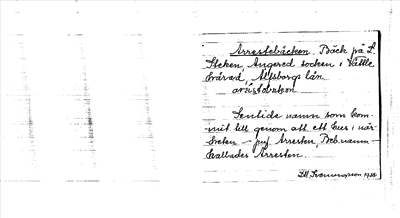 Arrestebäcken. Bäck på L.
Steken, Angered socken i Vättle
härad, Älfsborgs län.
Sentida namn som kom-
mit till genom att ett hus i när-
heten – jmf Arresten, Beb.namn
kallades Arresten.
1938